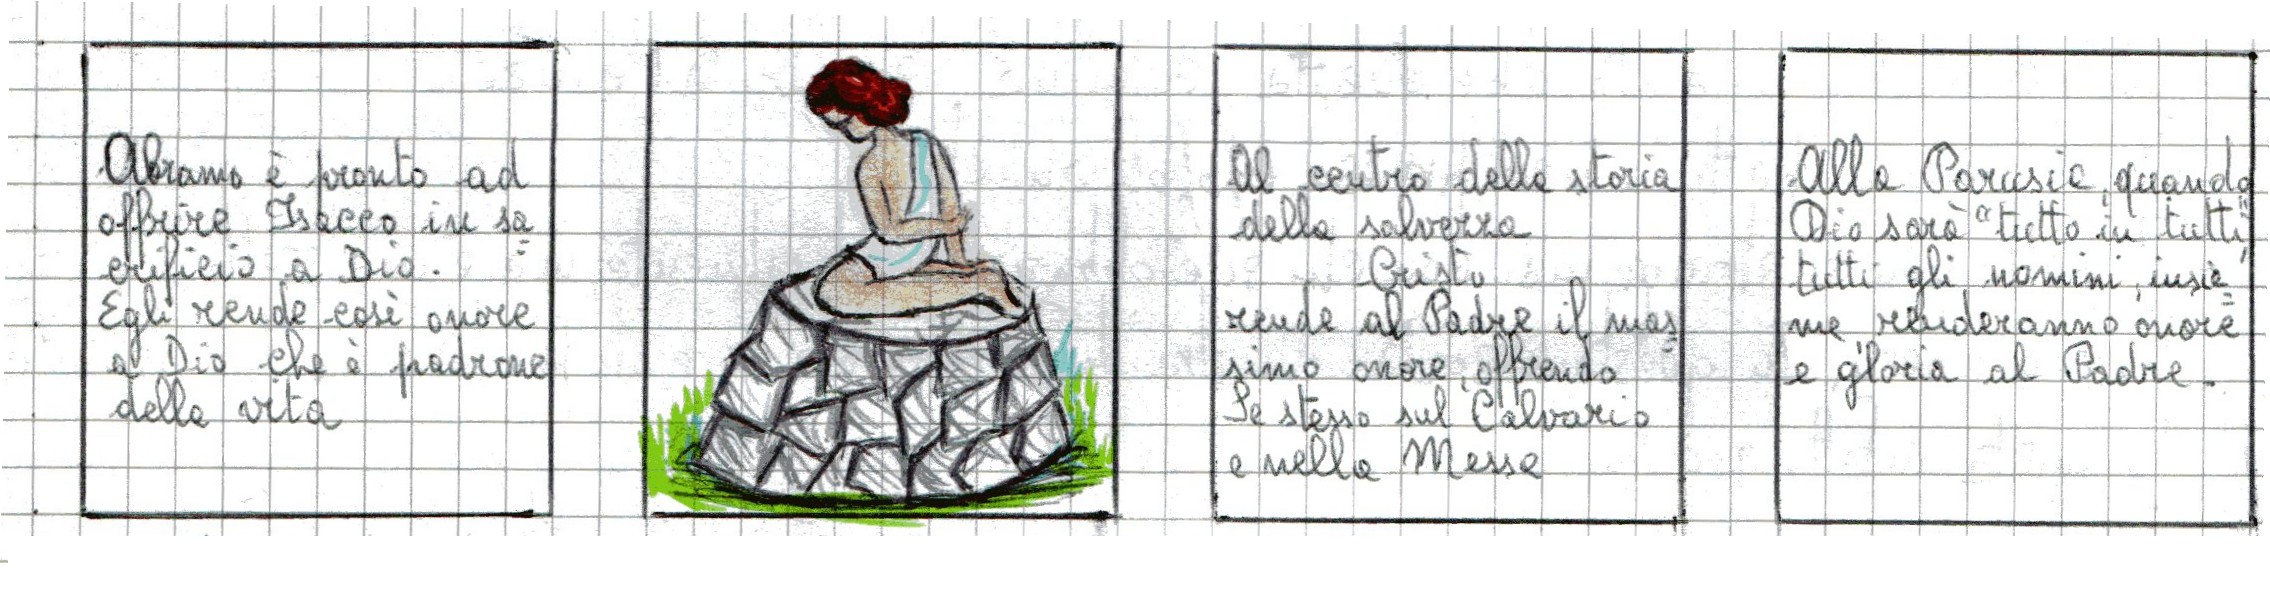 Abramo è pronto ad
offrire Isacco in sa
crificio a Dio.
Egli rende così onore
a Dio che è padrone
della vita
Al centro della storia
della salvezza
Cristo
rende al Padre il mas
simo onore, offrendo
Se stesso sul Calvario
e nella Messa
Alla Parusia, quando
Dio sarà "tutto in tutti",
tutti gli uomini, insie
me, renderanno onore
e gloria al Padre.